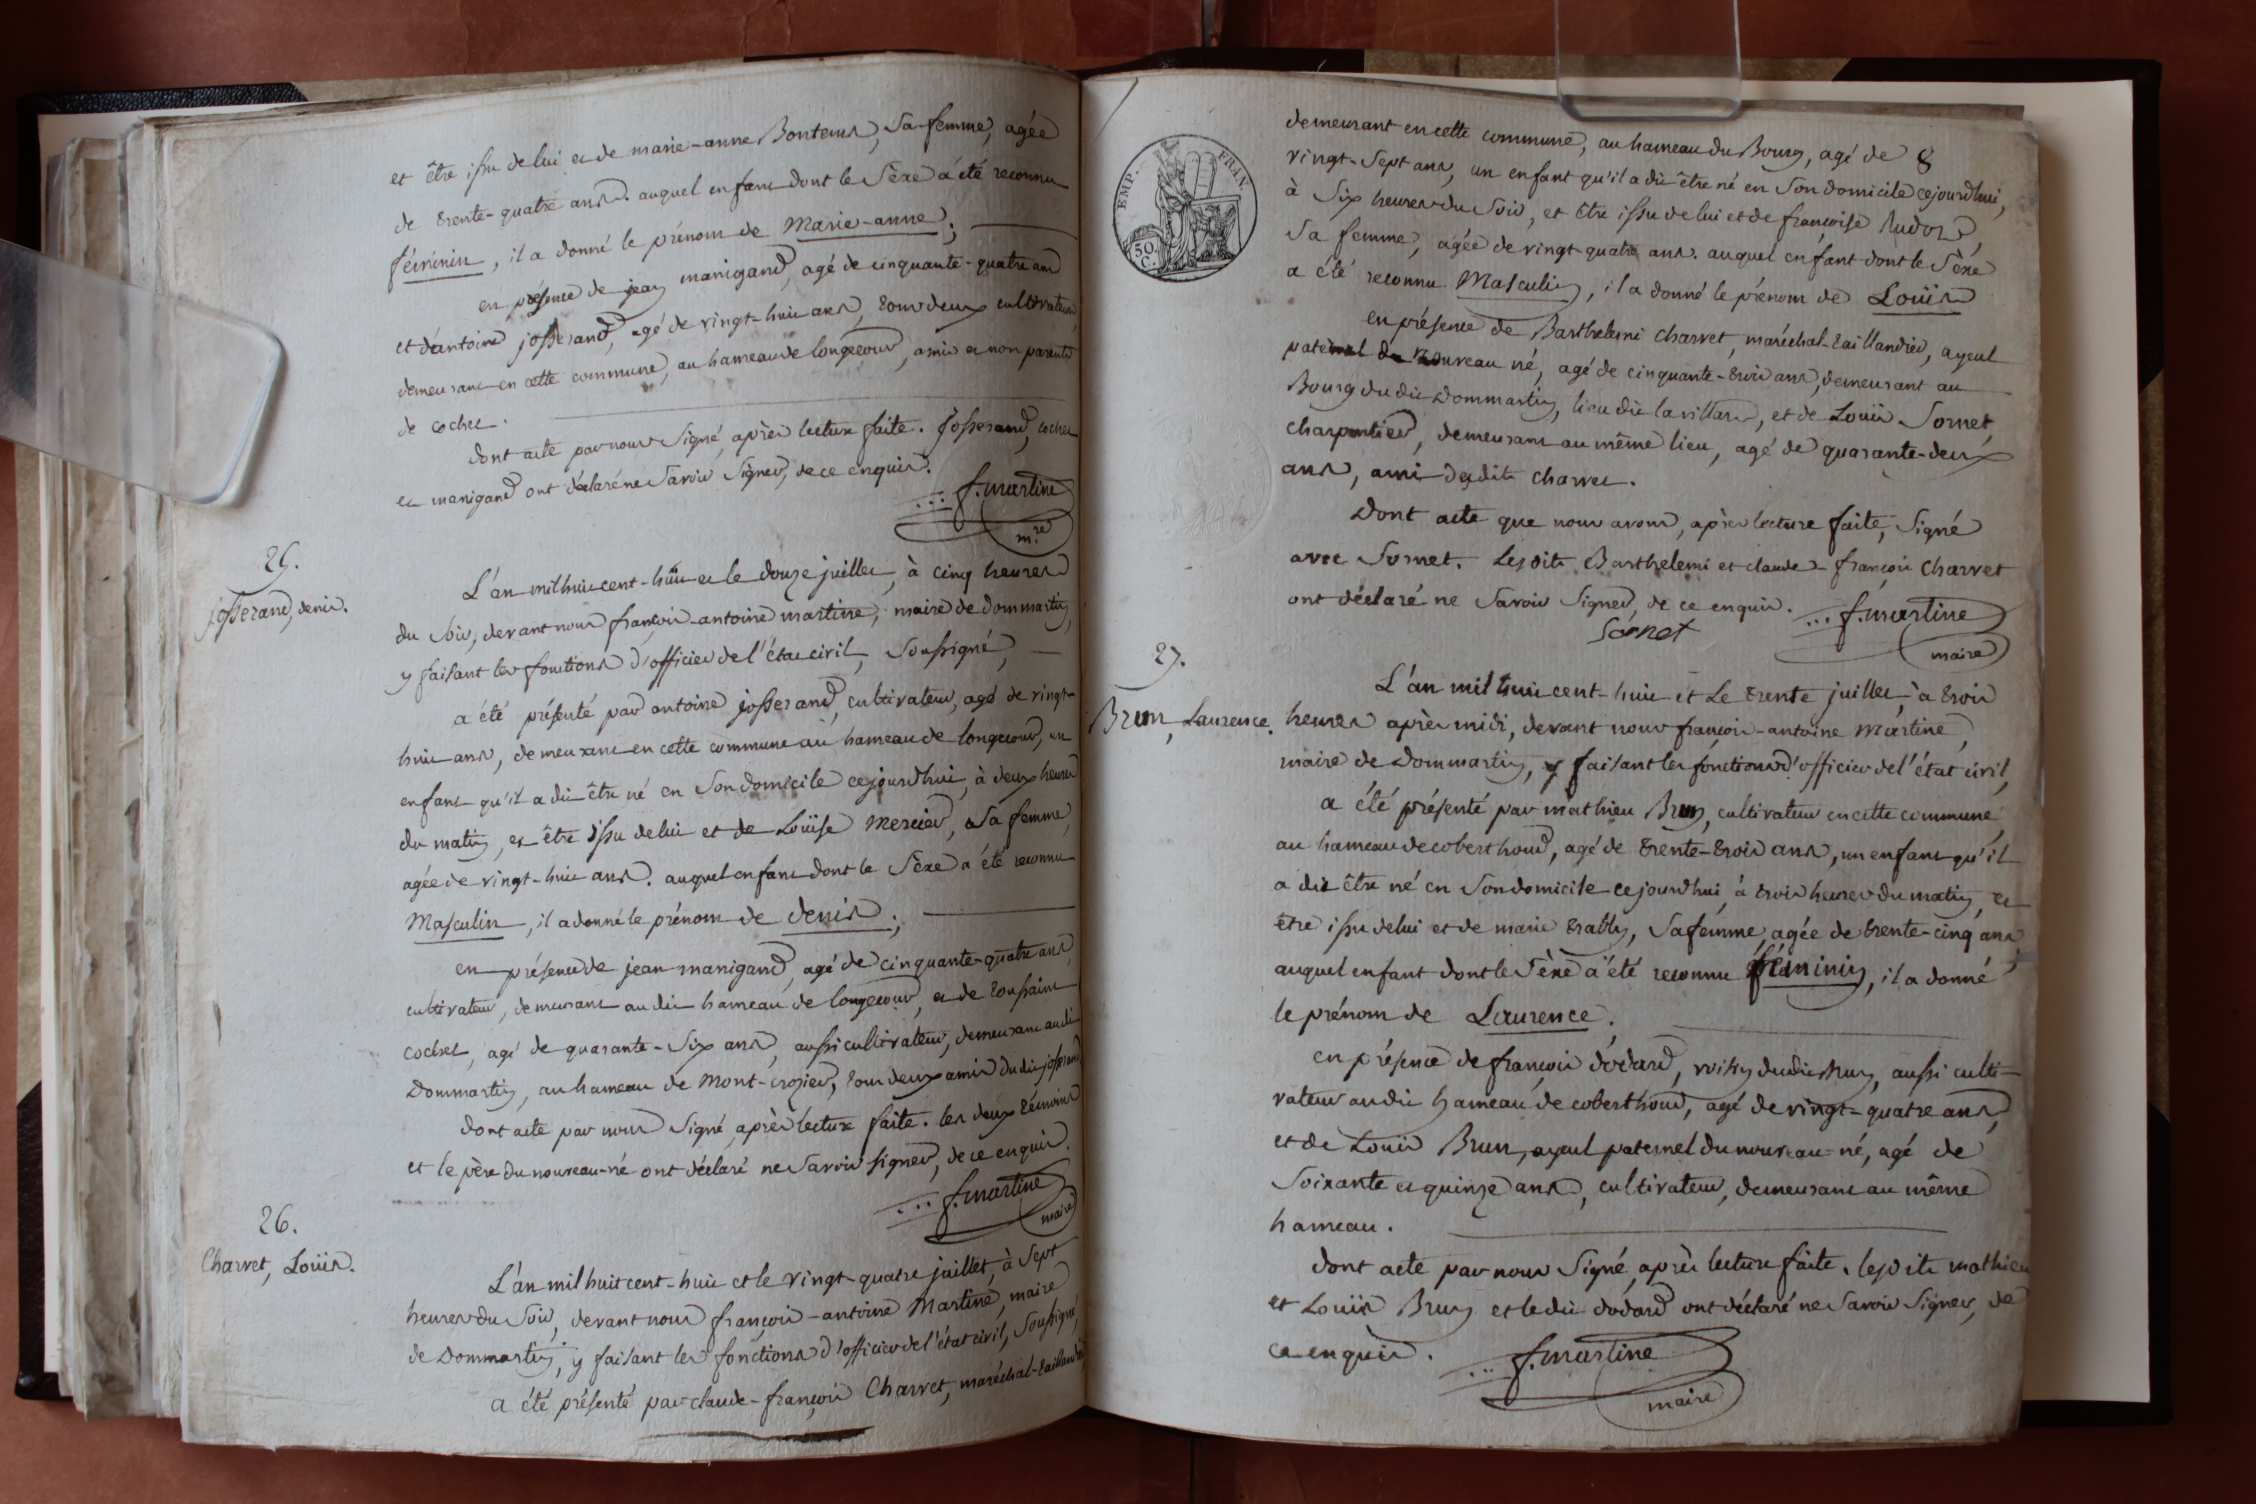 et être issu de lui et de marie-anne Bontems, sa femme, agée
de trente-quatre ans. auquel enfant dont le Sèxe a été reconnu
féminin, il a donné le prénom de Marie-anne;
en présence de jean manigand, agé de cinquante-quatre ans
et d'antoine josserand, agé de vingt-huit ans, tous deux cultivateurs,
demeurant en cette commune, au hameau de longecour, amis et non parents
de cochet.
dont acte par nous Signé, après lecture faite. josserand, cochet
et manigand ont déclaré ne Savoir Signer, de ce enquis.
... f. martine
m.re
25.
josserand, denis.
L'an mil huit cent-huit et le douze juillet, à cinq heures
du Soir, devant nous françois-antoine martine, maire de dommartin,
y faisant les fonctions d'officier de l'état civil, Soussigné,
a été présenté par antoine josserand, cultivateur, agé de vingt-
huit ans, demeurant en cette commune au hameau de longecour, un
enfant qu'il a dit être né en Son domicile cejourd'hui, à deux heures
du matin, et être issu de lui et de Louïse Mercier, Sa femme,
agée de vingt-huit ans. auquel enfant dont le Sèxe a été reconnu
Masculin, il a donné le prénom de denis.;
en présence de jean manigand, agé de cinquante-quatre ans,
cultivateur, demeurant au dit hameau de longecour, et de toussaint
cochet, agé de quarante-Six ans, aussi cultivateur, demeurant audit
Dommartin, au hameau de Mont-crozier, tous deux amis du dit josserand
dont acte par nous Signé, après lecture faite. les deux témoins
et le père du nouveau-né ont déclaré ne Savoir signer, de ce enquis.
... f. martine
maire
26.
Charvet, Loüis.
L'an mil huit cent-huit et le vingt-quatre juillet, à Sept
heures du Soir, devant nous françois-antoine Martine, maire
de Dommartin, y faisant les fonctions d'officier de l'état civil, Soussigné,
a été présenté par claude-françois Charvet, maréchal-taillandier
EMP. FRAN.
50 C.
demeurant en cette commune, au hameau du Bourg, agé de
vingt-Sept ans, un enfant qu'il a dit être né en Son domicile cejourd'hui,
à Six heures du Soir, et être issu de lui et de françoise
Sa femme, agée de vingt-quatre ans. auquel enfant dont le Sèxe
a été reconnu Masculin, il a donné le prénom de Loüis
en présence de Barthelemi Charvet, maréchal-taillandier, ayeul
paternel du nouveau né, agé de cinquante-trois ans, demeurant au
Bourg du dit Dommartin, lieu dit la villars, et de Louis Sornet,
charpentier, demeurant au même lieu, agé de quarante-deux
ans, ami desdits Charvet.
Dont acte que nous avons, après lecture faite, Signé
avec Sornet. Lesdits Barthelemi et claude-françois Charvet
ont déclaré ne Savoir Signer, de ce enquis. ... f. martine
Sornet
maire
27.
Brun, Laurence.
L'an mil huit cent-huit et Le trente juillet, à trois
heures après midi, devant nous françois-antoine Martine,
maire de Dommartin, y faisant les fonctions d'officier de l'état civil,
a été présenté par mathieu Brun, cultivateur en cette commune
au hameau de coberthoud, agé de trente-trois ans, un enfant qu'il
a dit être né en Son domicile cejourd'hui, à trois heures du matin, et
être issu de lui et de marie trably, Sa femme, agée de trente-cinq ans,
auquel enfant dont le Sèxe a été reconnu féminin, il a donné
le prénom de Laurence.
en présence de françois dodard, voisin du dit Brun, aussi culti-
vateur au dit hameau de coberthoud, agé de vingt-quatre ans,
et de Louis Brun, ayeul paternel du nouveau-né, agé de
Soixante et quinze ans, cultivateur, demeurant au même
hameau.
dont acte par nous Signé, après lecture faite. lesdits mathieu
et Loüis Brun et le dit dodard ont déclaré ne Savoir Signer, de
ce enquis.
... f. martine
maire